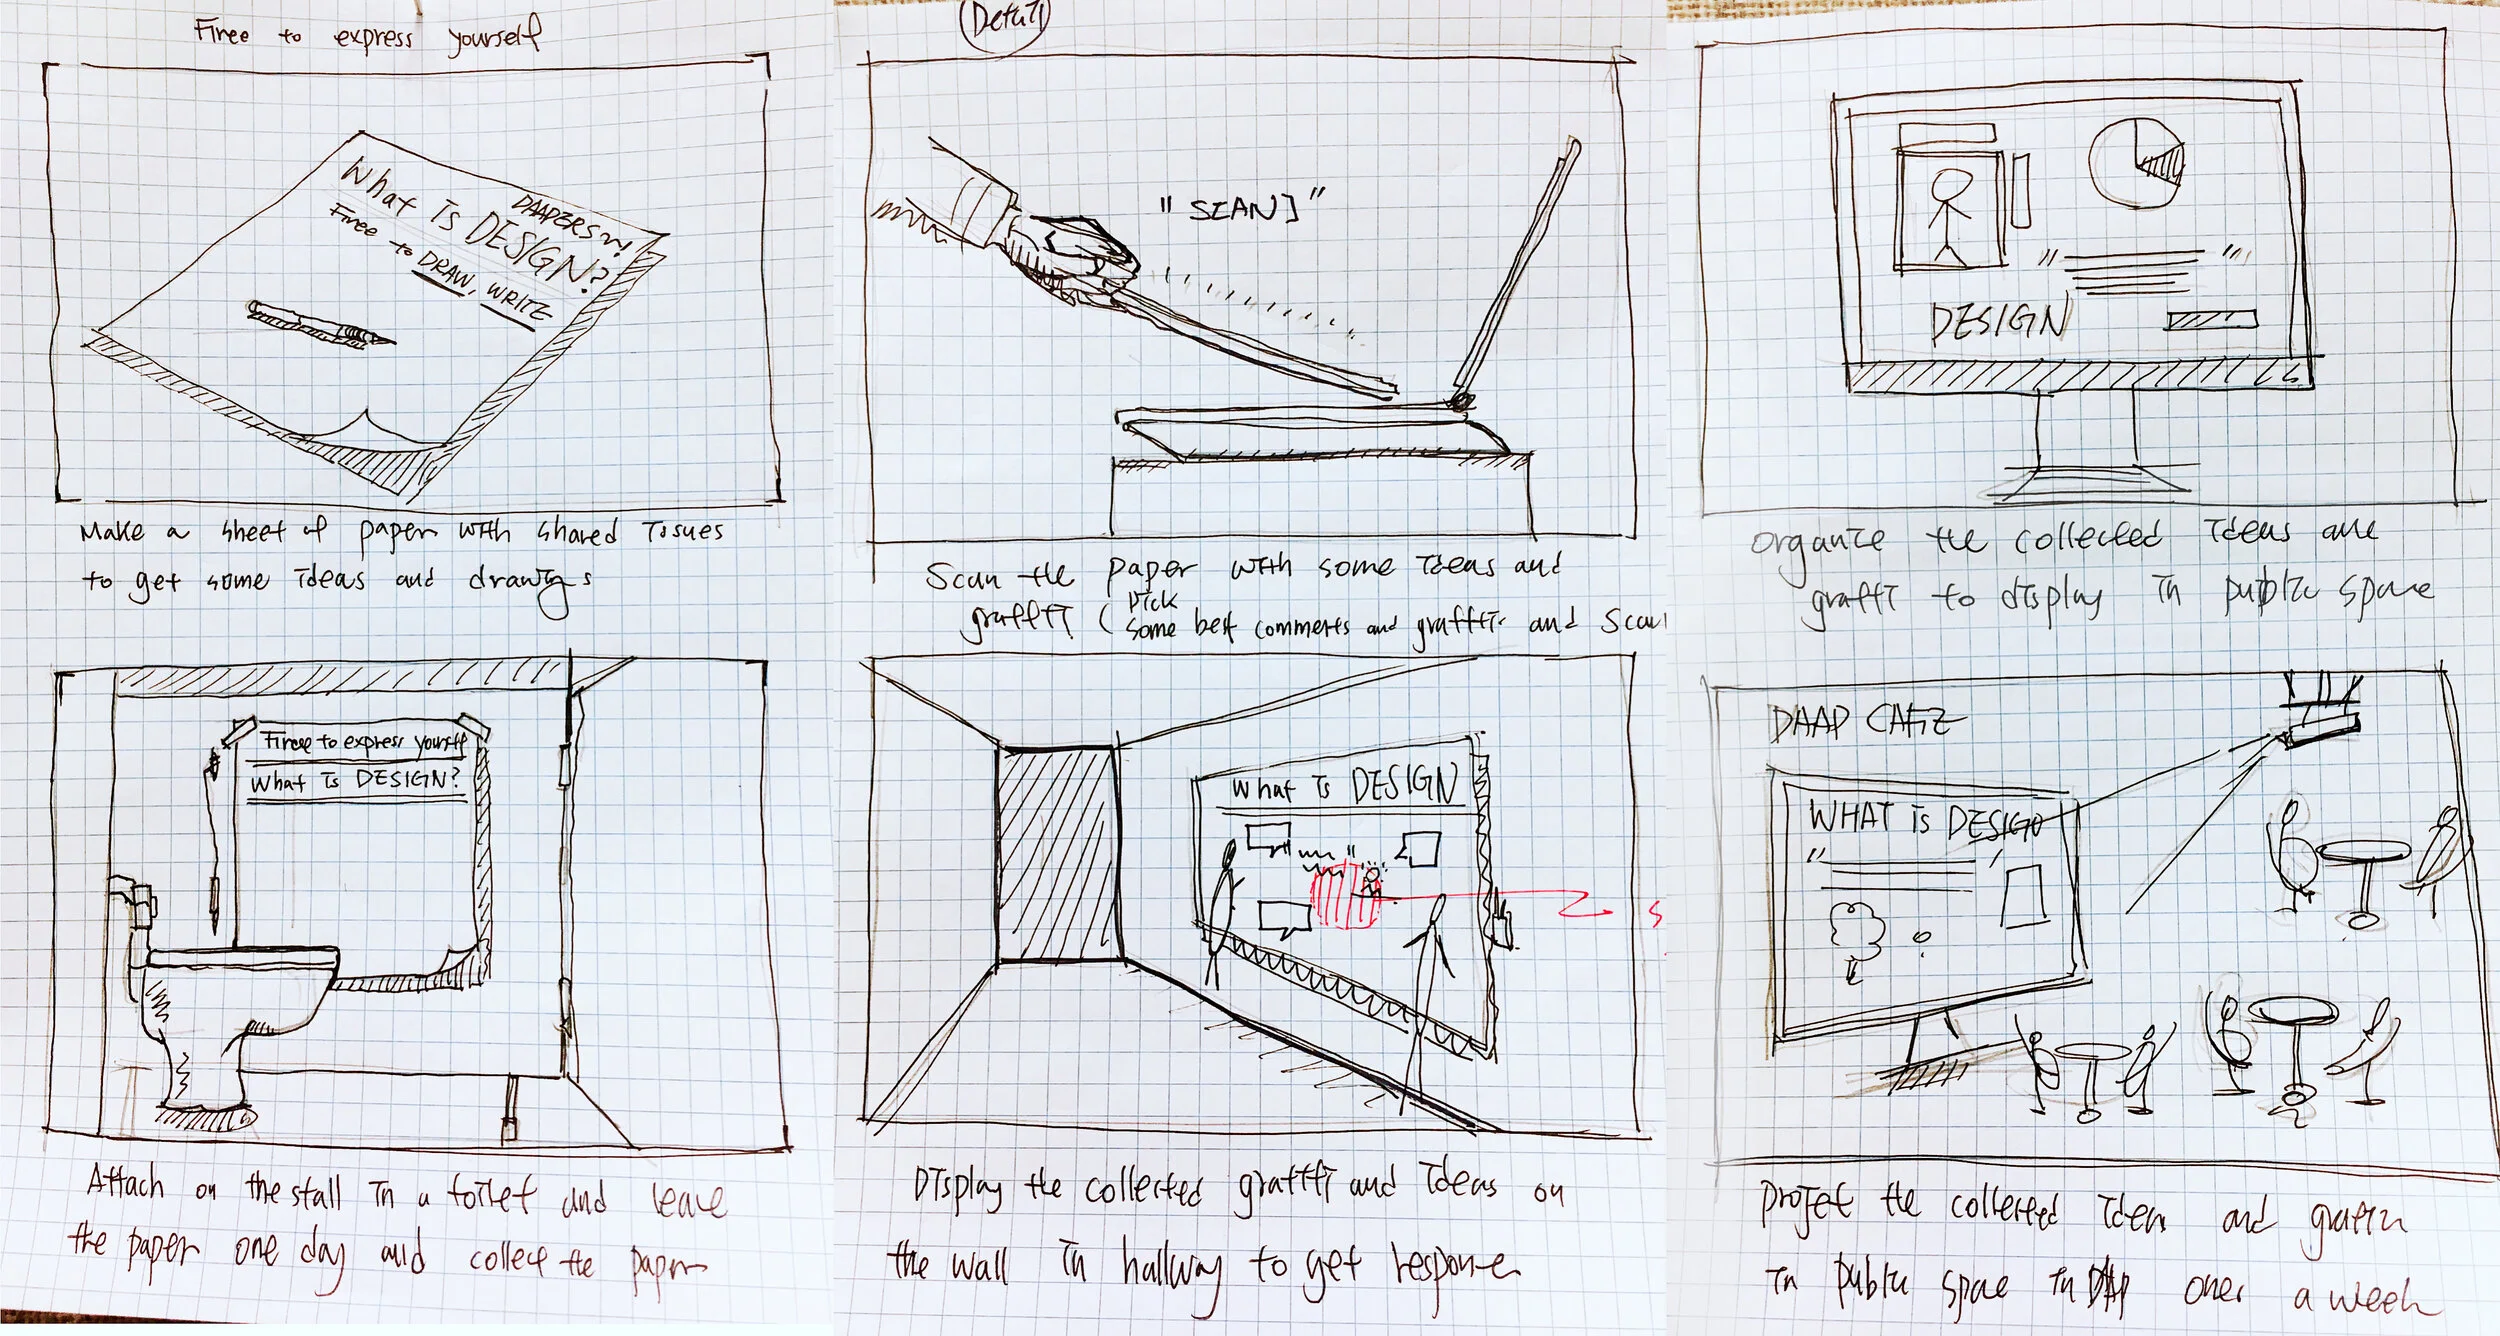 Free to express yourself
DAAPERS~!
What is DESIGN?
Free to DRAW, WRITE
Make a sheet of paper with shared issues
to get some ideas and drawings
Free to express yourself
What is DESIGN?
Attach on the stall in a toilet and leave
the paper one day and collect the paper
(Detail)
"SCAN"
Scan the paper with some ideas and
graffiti ( pick
some best comments and graffiti and scan
What is DESIGN
Display the collected graffiti and ideas on
the wall in hallway to get response
DESIGN
organize the collected ideas and
graffiti to display in public space
DAAP CAFE
WHAT is DESIGN
project the collected ideas and graffiti
in public space in DAAP over a week